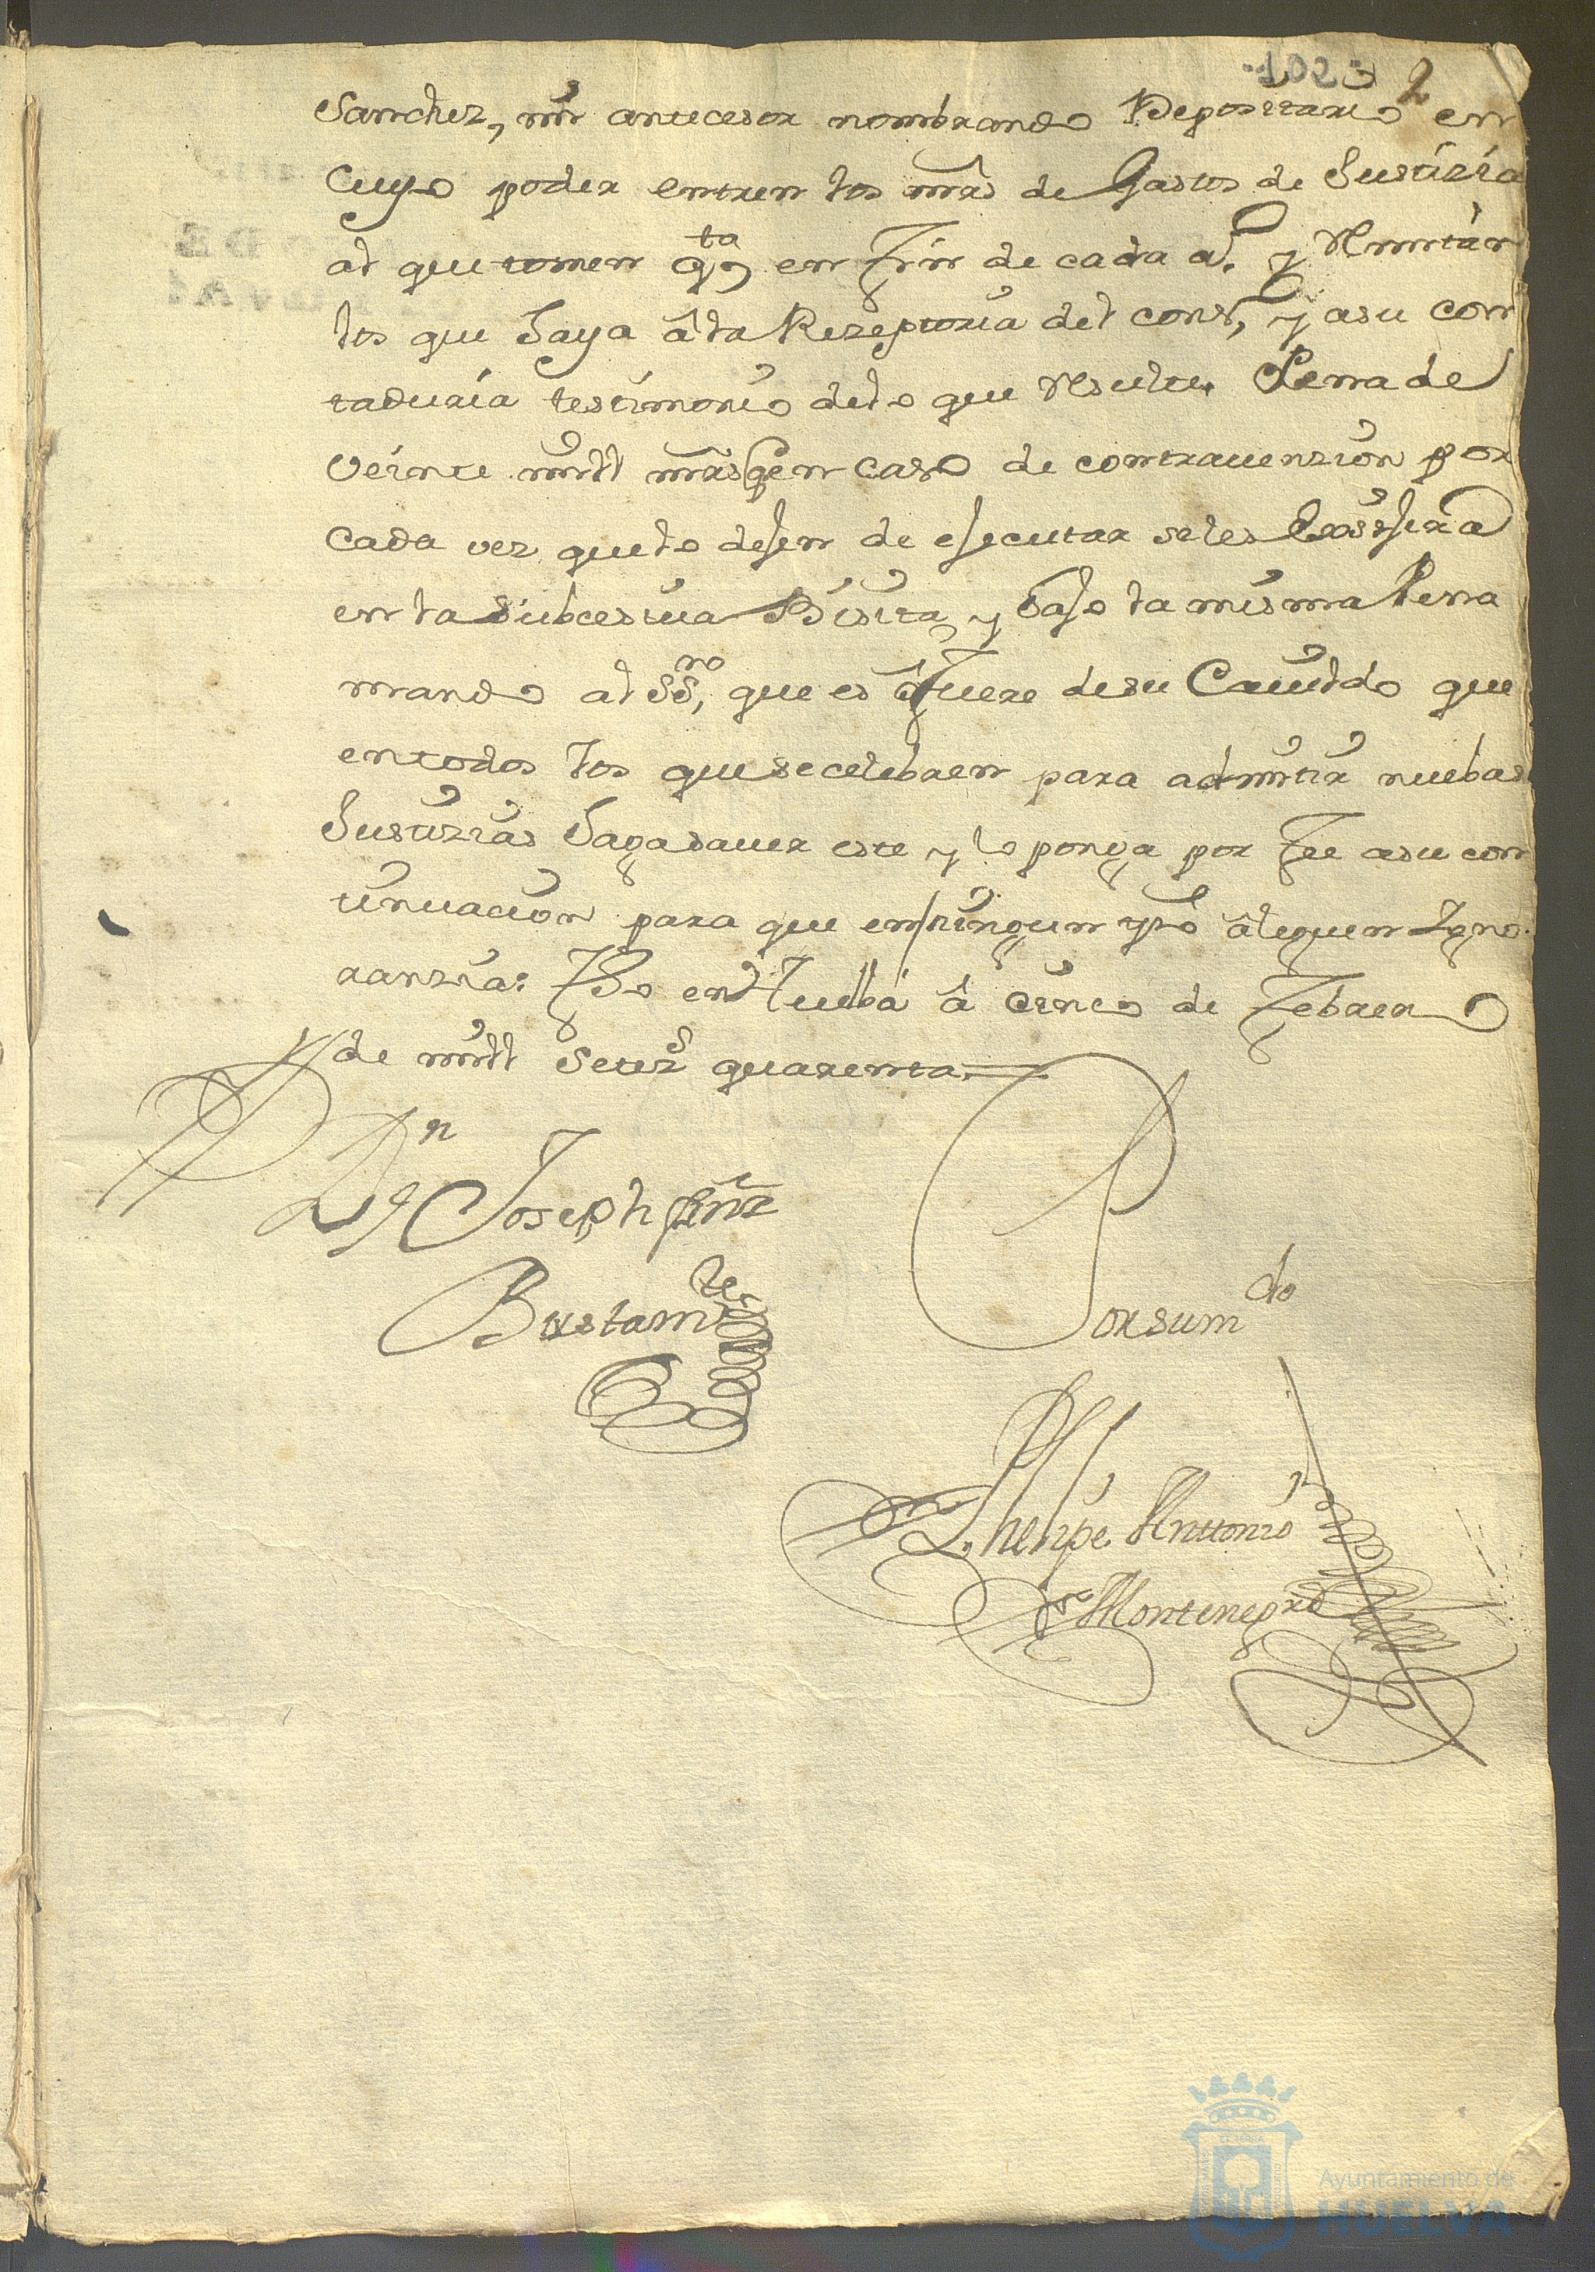 102 2
Sanchez, mi antecesor nombrando Depositario en
Cuyo poder entren los mrs de Gastos de Justizia
al que tomen qta en fin de cada a. y Remitan
los que haya â la Rezeptoria del cons, y a su con
taduria testimonio delo que Resulte. Pena de
veinte mill mrs q en caso de contravenzion por
cada vez que lo dejen de ejecutar se les exsijira
en la Subcesiva Bisita, y bajo la misma Pena
mando al SSno, que es ô fuere de su Cavildo que
en todos los que se celebraen para admitir nuebas
Justizias haga saver este y lo ponga por fee a su con
tinuacion para que en ningun tpo âleguen Igno
ranzia: fho en Huelba â cinco de febrero
de mill Setezs quarenta
Dn Joseph frnz
Bustamte
Por su mdo
Phelipe Anttonio
de Montenegro
Ayuntamiento de
HUELVA